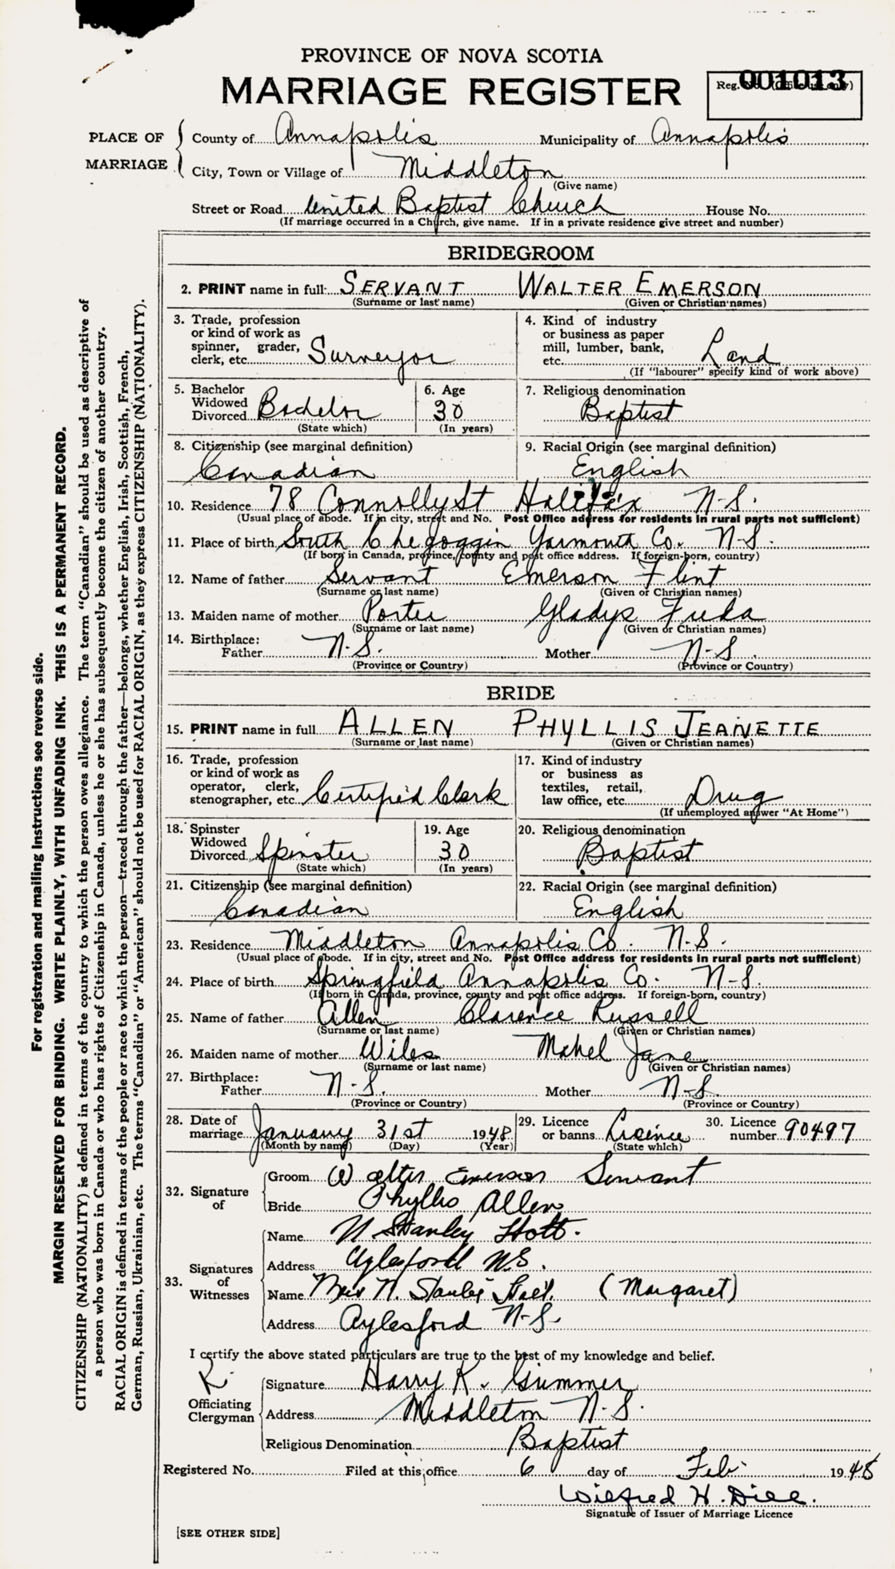 PROVINCE OF NOVA SCOTIA
MARRIAGE REGISTER
Reg. No. (Office use only)
001013
PLACE OF MARRIAGE
County of Annapolis Municipality of Annapolis
City, Town or Village of Middleton
(Give name)
Street or Road United Baptist Church House No.
(If marriage occurred in a Church, give name. If in a private residence give street and number)
BRIDEGROOM
2. PRINT name in full SERVANT WALTER EMERSON
(Surname or last name) (Given or Christian names)
3. Trade, profession or kind of work as spinner, grader, clerk, etc. Surveyor
4. Kind of industry or business as paper mill, lumber, bank, etc. Land
(If "labourer" specify kind of work above)
5. Bachelor Widowed Divorced Bachelor
(State which)
6. Age 30
(In years)
7. Religious denomination
Baptist
8. Citizenship (see marginal definition)
Canadian
9. Racial Origin (see marginal definition)
English
10. Residence 78 Connolly St Halifax N-S.
(Usual place of abode. If in city, street and No. Post Office address for residents in rural parts not sufficient)
11. Place of birth South Chegoggin Yarmouth Co. N-S.
(If born in Canada, province, county and post office address. If foreign-born, country)
12. Name of father Servant Emerson Flint
(Surname or last name) (Given or Christian names)
13. Maiden name of mother Porter Gladys
(Surname or last name) (Given or Christian names)
14. Birthplace:
Father N-S. Mother N-S.
(Province or Country) (Province or Country)
BRIDE
15. PRINT name in full ALLEN PHYLLIS JEANETTE
(Surname or last name) (Given or Christian names)
16. Trade, profession or kind of work as operator, clerk, stenographer, etc. Certified Clerk
17. Kind of industry or business as textiles, retail, law office, etc. Drug
(If unemployed answer "At Home")
18. Spinster Widowed Divorced Spinster
(State which)
19. Age 30
(In years)
20. Religious denomination
Baptist
21. Citizenship (see marginal definition)
Canadian
22. Racial Origin (see marginal definition)
English
23. Residence Middleton Annapolis Co. N-S.
(Usual place of abode. If in city, street and No. Post Office address for residents in rural parts not sufficient)
24. Place of birth Springfield Annapolis Co. N-S.
(If born in Canada, province, county and post office address. If foreign-born, country)
25. Name of father Allen Clarence Russell
(Surname or last name) (Given or Christian names)
26. Maiden name of mother Wiles Mabel Jane
(Surname or last name) (Given or Christian names)
27. Birthplace:
Father N-S. Mother N-S.
(Province or Country) (Province or Country)
28. Date of marriage January 31st 1948
(Month by name) (Day) (Year)
29. Licence or banns Licence
(State which)
30. Licence number 90497
32. Signature of
Groom Walter Emerson Servant
Bride Phyllis Allen
33. Signatures of Witnesses
Name N Stanley
Address Aylesford N.S.
Name Mrs N. Stanley (Margaret)
Address Aylesford N-S.
I certify the above stated particulars are true to the best of my knowledge and belief.
Officiating Clergyman
Signature Harry K. Gummer
Address Middleton N-S.
Religious Denomination Baptist
Registered No. Filed at this office 6 day of Feb. 1948
Wilfred H. Dill.
Signature of Issuer of Marriage Licence
[SEE OTHER SIDE]
For registration and mailing instructions see reverse side.
MARGIN RESERVED FOR BINDING. WRITE PLAINLY, WITH UNFADING INK. THIS IS A PERMANENT RECORD.
CITIZENSHIP (NATIONALITY) is defined in terms of the country to which the person owes allegiance. The term "Canadian" should be used as descriptive of
a person who was born in Canada or who has rights of Citizenship in Canada, unless he or she has subsequently become the citizen of another country.
RACIAL ORIGIN is defined in terms of the people or race to which the person—traced through the father—belongs, whether English, Irish, Scottish, French,
German, Russian, Ukrainian, etc. The terms "Canadian" or "American" should not be used for RACIAL ORIGIN, as they express CITIZENSHIP (NATIONALITY).